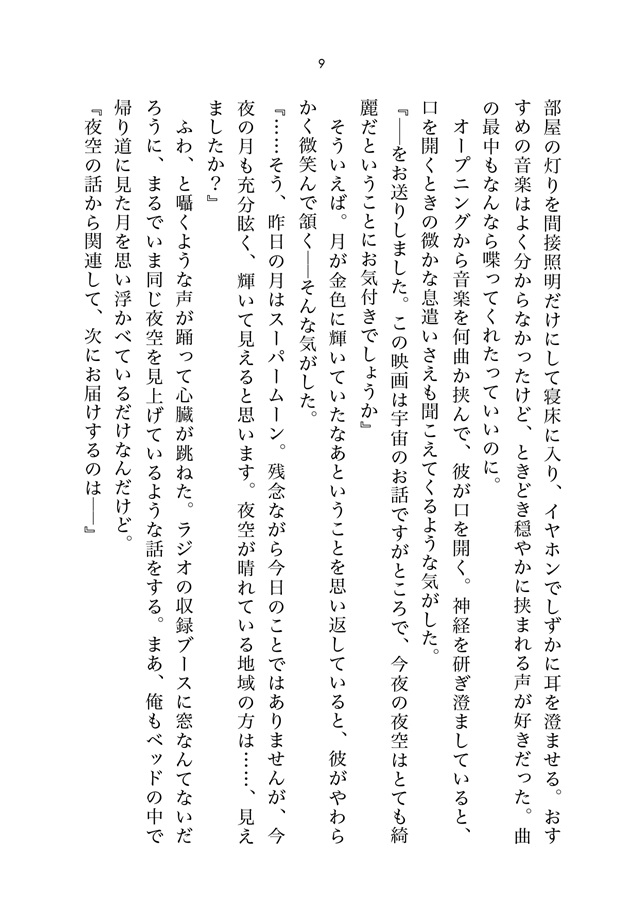 9
部屋の灯りを間接照明だけにして寝床に入り、イヤホンでしずかに耳を澄ませる。おす
すめの音楽はよく分からなかったけど、ときどき穏やかに挟まれる声が好きだった。曲
の最中もなんなら喋ってくれたっていいのに。
　オープニングから音楽を何曲か挟んで、彼が口を開く。神経を研ぎ澄ましていると、
口を開くときの微かな息遣いさえも聞こえてくるような気がした。
『――をお送りしました。この映画は宇宙のお話ですがところで、今夜の夜空はとても綺
麗だということにお気付きでしょうか』
　そういえば。月が金色に輝いていたなあということを思い返していると、彼がやわら
かく微笑んで頷く――そんな気がした。
『……そう、昨日の月はスーパームーン。残念ながら今日のことではありませんが、今
夜の月も充分眩く、輝いて見えると思います。夜空が晴れている地域の方は……、見え
ましたか？』
　ふわ、と囁くような声が踊って心臓が跳ねた。ラジオの収録ブースに窓なんてないだ
ろうに、まるでいま同じ夜空を見上げているような話をする。まあ、俺もベッドの中で
帰り道に見た月を思い浮かべているだけなんだけど。
『夜空の話から関連して、次にお届けするのは――』